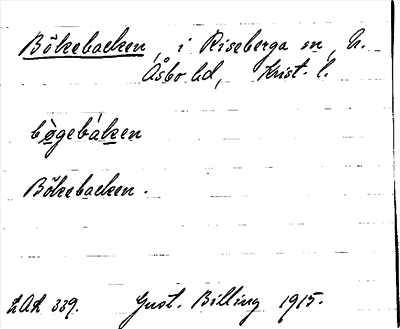 Bökebacken, i Riseberga sn, N.
Åsbo hd, Krist. l.
bögebáken
Bökebacken.
LAL 339. Gust. Billing 1915.